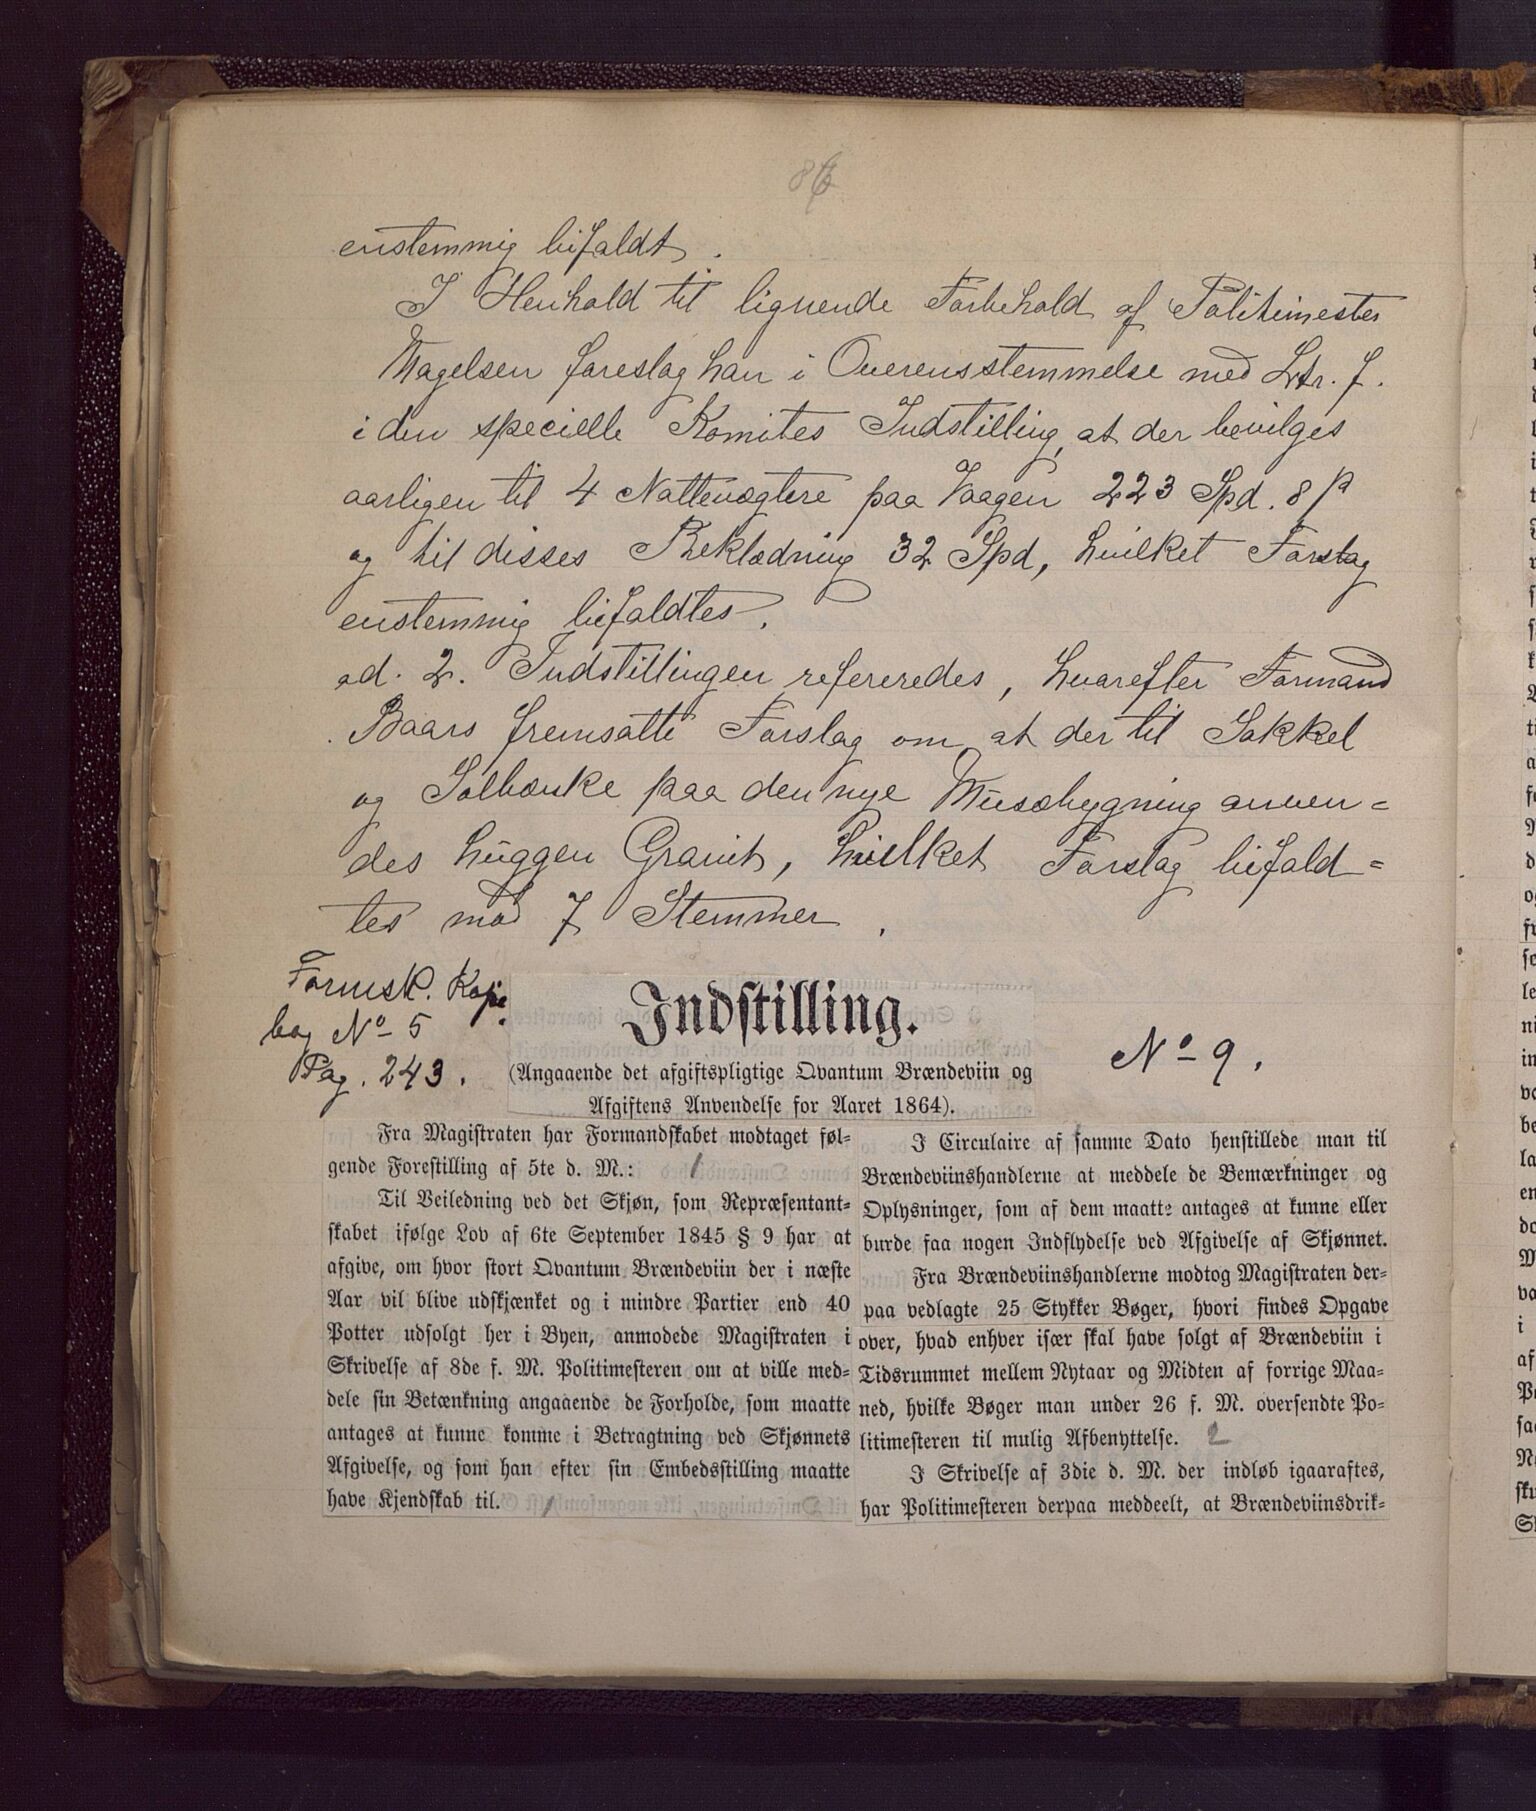 86
enstemmig bifaldt.
I Henhold til lignende Forbehold af Politimester
Magelsen foreslog han i Overensstemmelse med Ltr. f.
i den specielle Komites Indstilling, at der bevilges
aarligen til 4 Nattevægtere paa Vaagen 223 Spd. 8 /
og til disses Beklædning 32 Spd, hvilket Forslag
enstemmig bifaldtes.
ad. 2. Indstillingen refereredes, hvorefter Formand
Baars fremsatte Forslag om at der til Sokkel
og Solbænke paa den nye Musæbygning anven=
des huggen Granit, hvilket Forslag bifald=
tes mod 7 Stemmer.
Formsk. Kopi
bog No 5
Pag. 243.
Indstilling.
No 9.
(Angaaende det afgiftspligtige Qvantum Brændeviin og
Afgiftens Anvendelse for Aaret 1864).
Fra Magistraten har Formandskabet modtaget føl-
gende Forestilling af 5te d. M.:
Til Veiledning ved det Skjøn, som Repræsentant-
skabet ifølge Lov af 6te September 1845 § 9 har at
afgive, om hvor stort Qvantum Brændeviin der i næste
Aar vil blive udskjænket og i mindre Partier end 40
Potter udsolgt her i Byen, anmodede Magistraten i
Skrivelse af 8de f. M. Politimesteren om at ville med-
dele sin Betænkning angaaende de Forholde, som maatte
antages at kunne komme i Betragtning ved Skjønnets
Afgivelse, og som han efter sin Embedsstilling maatte
have Kjendskab til.
I Circulaire af samme Dato henstillede man til
Brændeviinshandlerne at meddele de Bemærkninger og
Oplysninger, som af dem maatte antages at kunne eller
burde faa nogen Indflydelse ved Afgivelse af Skjønnet.
Fra Brændeviinshandlerne modtog Magistraten der-
paa vedlagte 25 Stykker Bøger, hvori findes Opgave
over, hvad enhver især skal have solgt af Brændeviin i
Tidsrummet mellem Nytaar og Midten af forrige Maa-
ned, hvilke Bøger man under 26 f. M. oversendte Po-
litimesteren til mulig Afbenyttelse. 2
I Skrivelse af 3die d. M. der indløb igaaraftes,
har Politimesteren derpaa meddeelt, at Brændeviinsdrik-